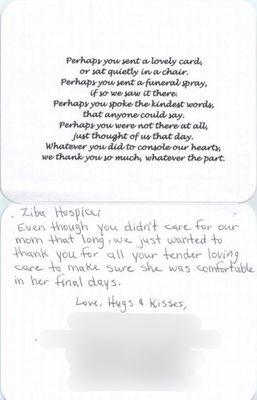 Perhaps you sent a lovely card,
or sat quietly in a chair.
Perhaps you sent a funeral spray,
if so we saw it there.
Perhaps you spoke the kindest words,
that anyone could say.
Perhaps you were not there at all,
just thought of us that day.
Whatever you did to console our hearts,
we thank you so much, whatever the part.
Ziba Hospice:
Even though you didn't care for our
mom that long, we just wanted to
thank you for all your tender loving
care to make sure she was comfortable
in her final days.
Love, Hugs & Kisses,